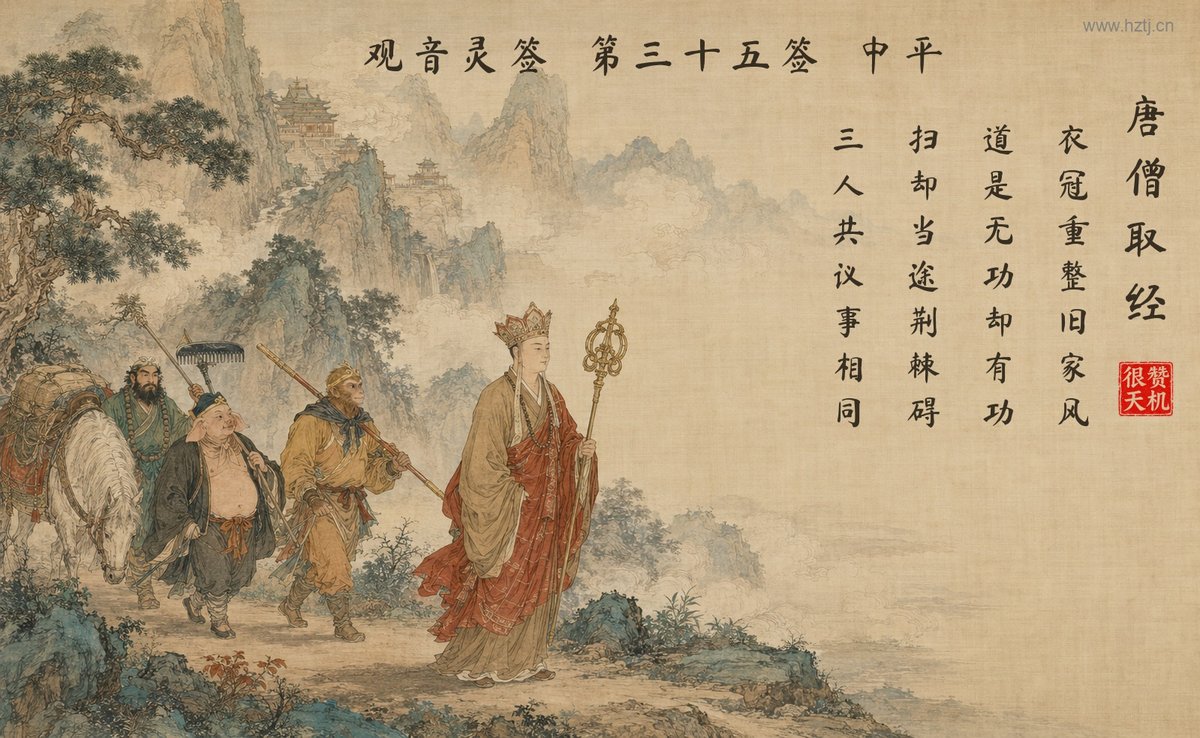 www.hztj.cn
观音灵签 第三十五签 中平
唐僧取经
衣冠重整旧家风
道是无功却有功
扫却当途荆棘碍
三人共议事相同
赞机
很天